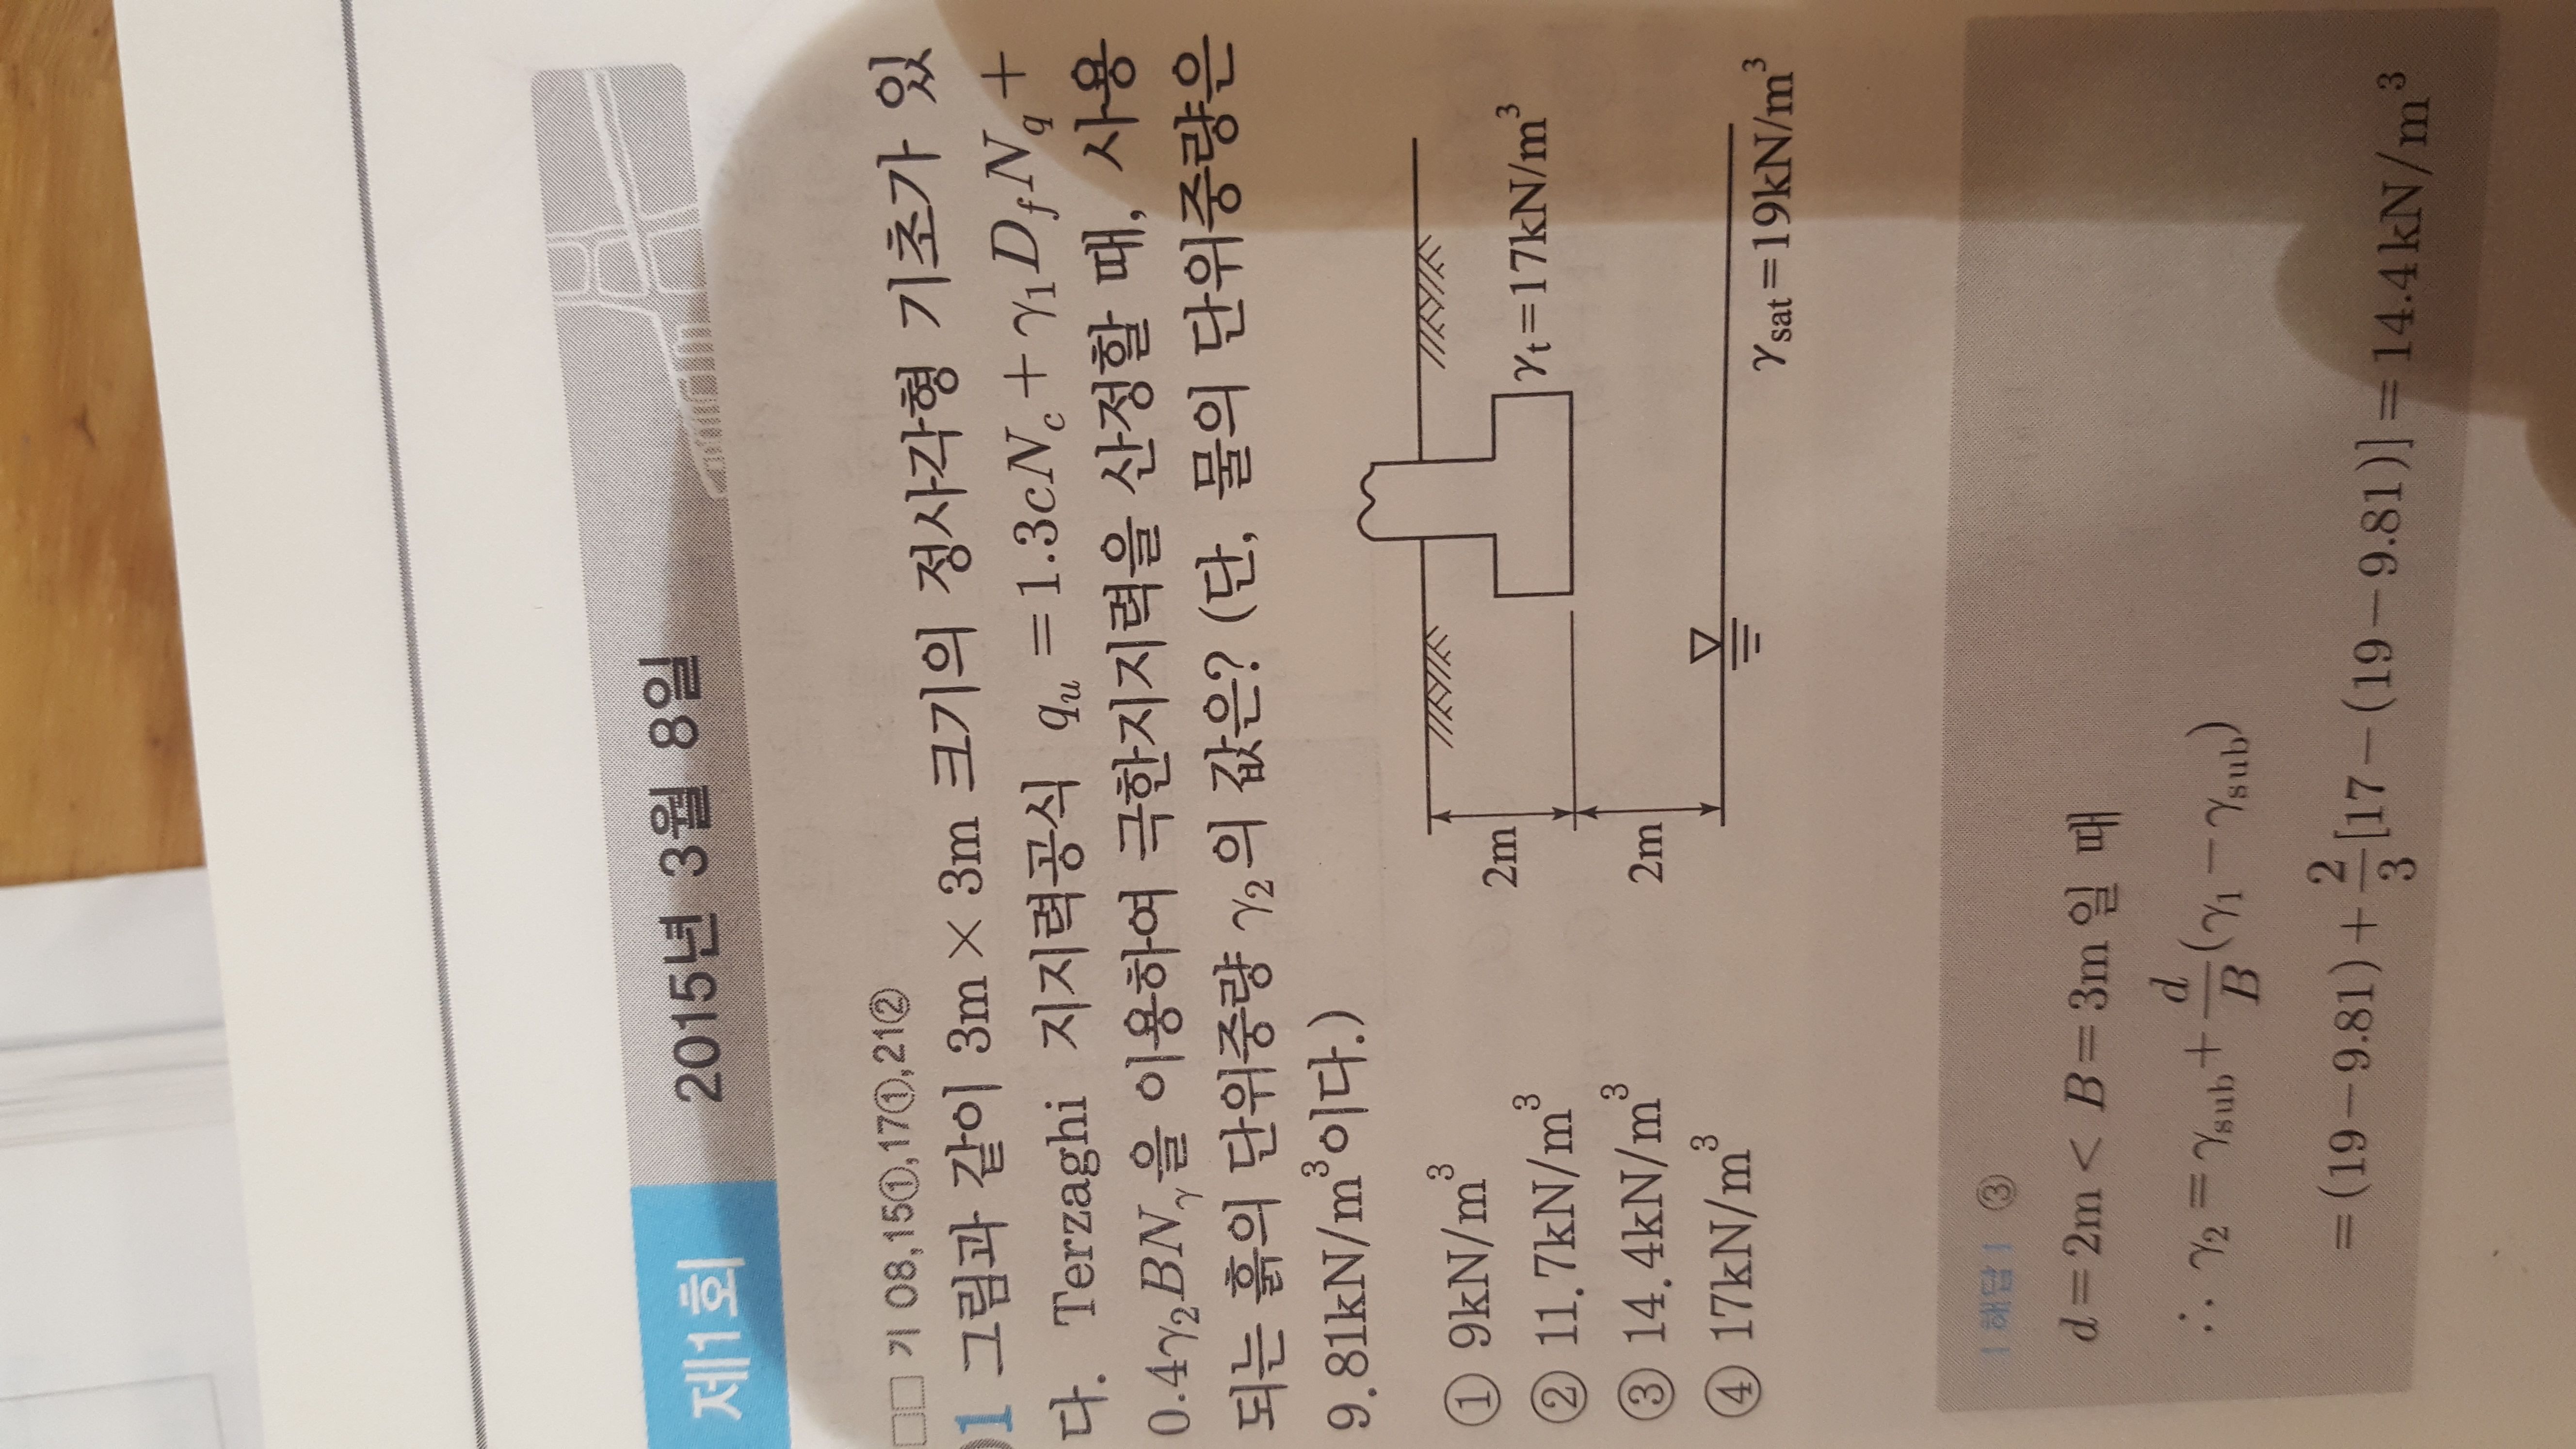 제1회 2015년 3월 8일
□□ 기 08,15①,17①,21②
01 그림과 같이 3m × 3m 크기의 정사각형 기초가 있
다. Terzaghi 지지력공식 q_u = 1.3cN_c + γ₁D_fN_q +
0.4γ₂BN_γ을 이용하여 극한지지력을 산정할 때, 사용
되는 흙의 단위중량 γ₂의 값은? (단, 물의 단위중량은
9.81kN/m³이다.)
① 9kN/m³
② 11.7kN/m³
③ 14.4kN/m³
④ 17kN/m³
2m
2m
γ_t=17kN/m³
γ_sat=19kN/m³
| 해답 | ③
d=2m < B=3m일 때
∴ γ₂ = γ_sub + d/B(γ₁ − γ_sub)
= (19−9.81) + 2/3[17−(19−9.81)] = 14.4kN/m³